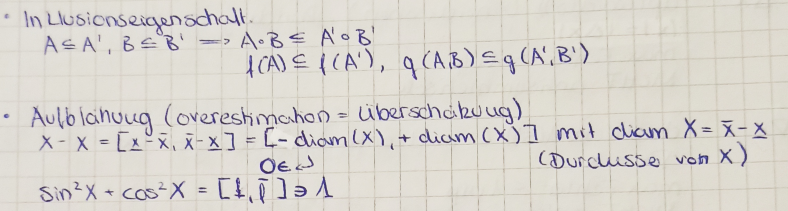 • Inklusionseigenschaft.
A ⊆ A', B ⊆ B' ⟹ A∘B ⊆ A'∘B'
f(A) ⊆ f(A'), g(A,B) ⊆ g(A',B')
• Aufblähung (overestimation = Überschätzung)
X - X = [x̲-x̄, x̄-x̲] = [-diam(X), +diam(X)] mit diam X = x̄-x̲
0∈↲ (Durchmesser von X)
sin²X + cos²X = [1̲, 1̄] ∋ 1